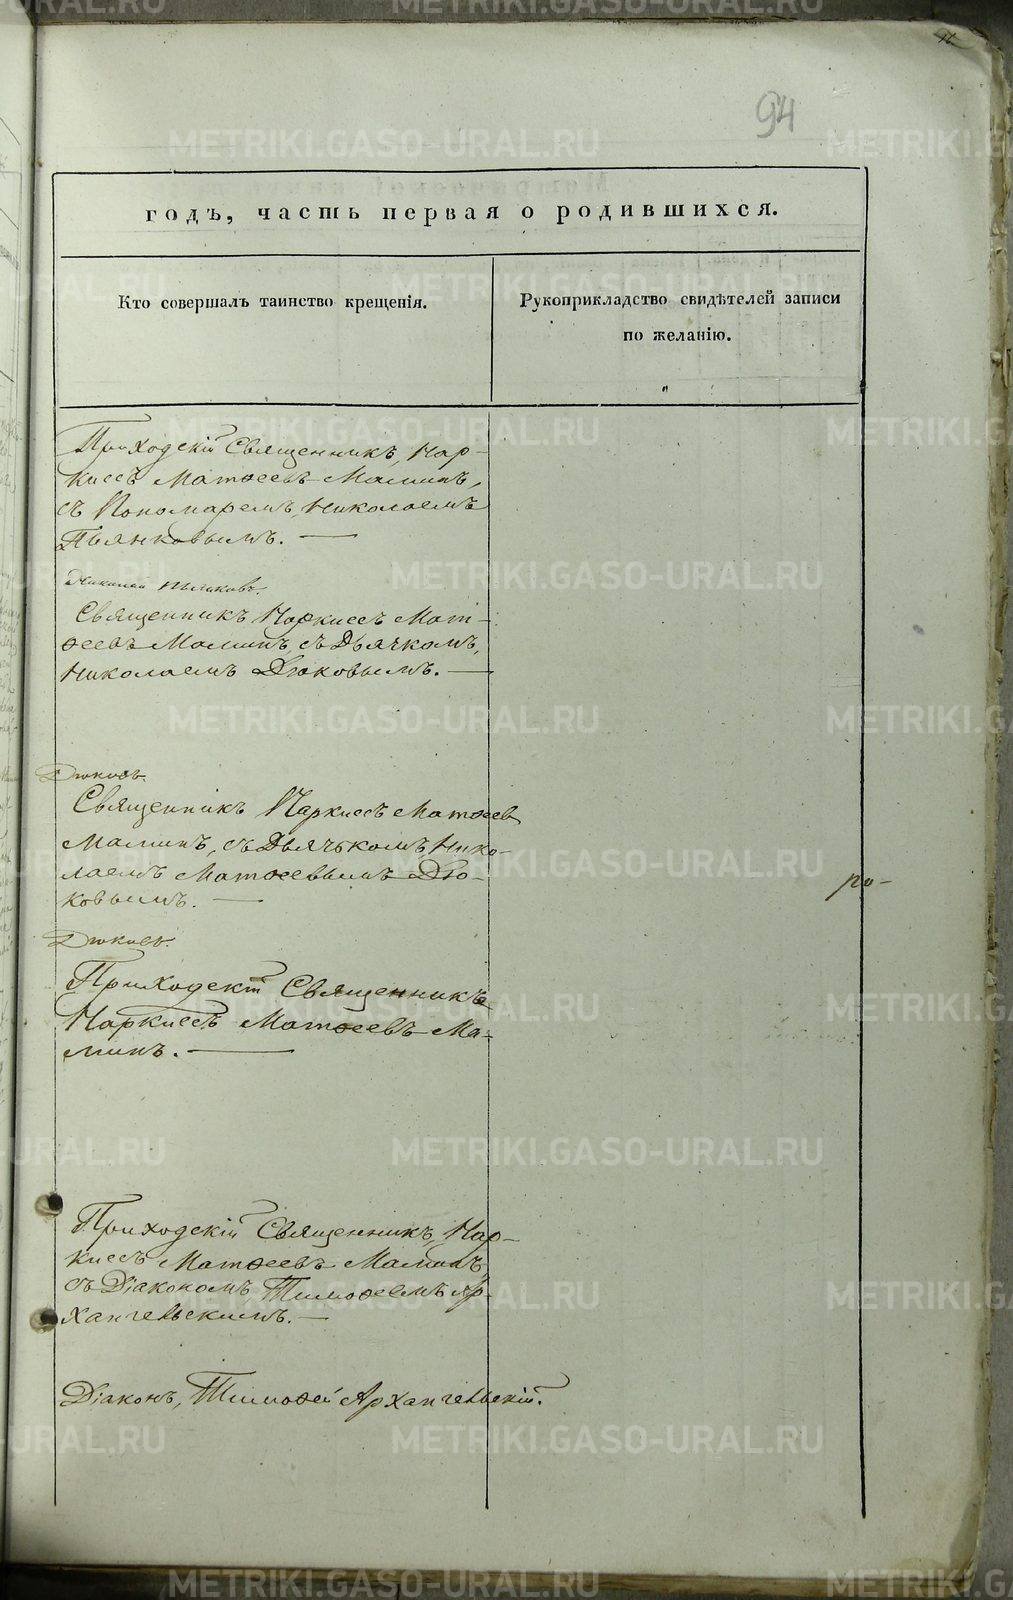 94
годъ, часть первая о родившихся.
Кто совершалъ таинство крещенія.
Рукоприкладство свидѣтелей записи
по желанію.
Приходскій Священникъ, Нар-
киссъ Матѳеевъ Маминъ,
съ Пономаремъ, Николаемъ
Пьянковымъ. —
Николай Пьянковъ.
Священникъ Наркиссъ Мат-
ѳеевъ Маминъ, съ Дьячкомъ,
Николаемъ Дюковымъ. —
Дюковъ.
Священникъ Наркиссъ Матѳеев
Маминъ, съ Дьячькомъ Нико-
лаемъ Матѳеевымъ Дю-
ковымъ. —
ро-
Дюковъ.
Приходскій Священникъ
Наркиссъ Матѳеевъ Ма-
минъ. —
Приходскій Священникъ, Нар-
киссъ Матѳеевъ Маминъ
съ Діакономъ Тимоѳеемъ Ар-
хангельскимъ. —
Діаконъ, Тимоѳей Архангельскій.
METRIKI.GASO-URAL.RU